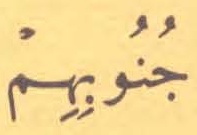 جُنُوبِهِمْ